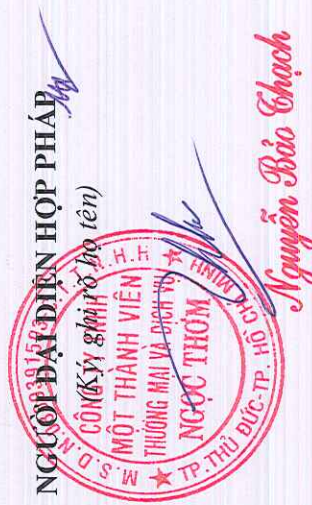 NGƯỜI ĐẠI DIỆN HỢP PHÁP
(Ký, ghi rõ họ tên)
M.S.D.N:
T.N.H.H
CÔNG TY TNHH
MỘT THÀNH VIÊN
THƯƠNG MẠI VÀ DỊCH VỤ
NGỌC THƠM
TP.THỦ ĐỨC-TP. HỒ CHÍ MINH
Nguyễn Bảo Thạch